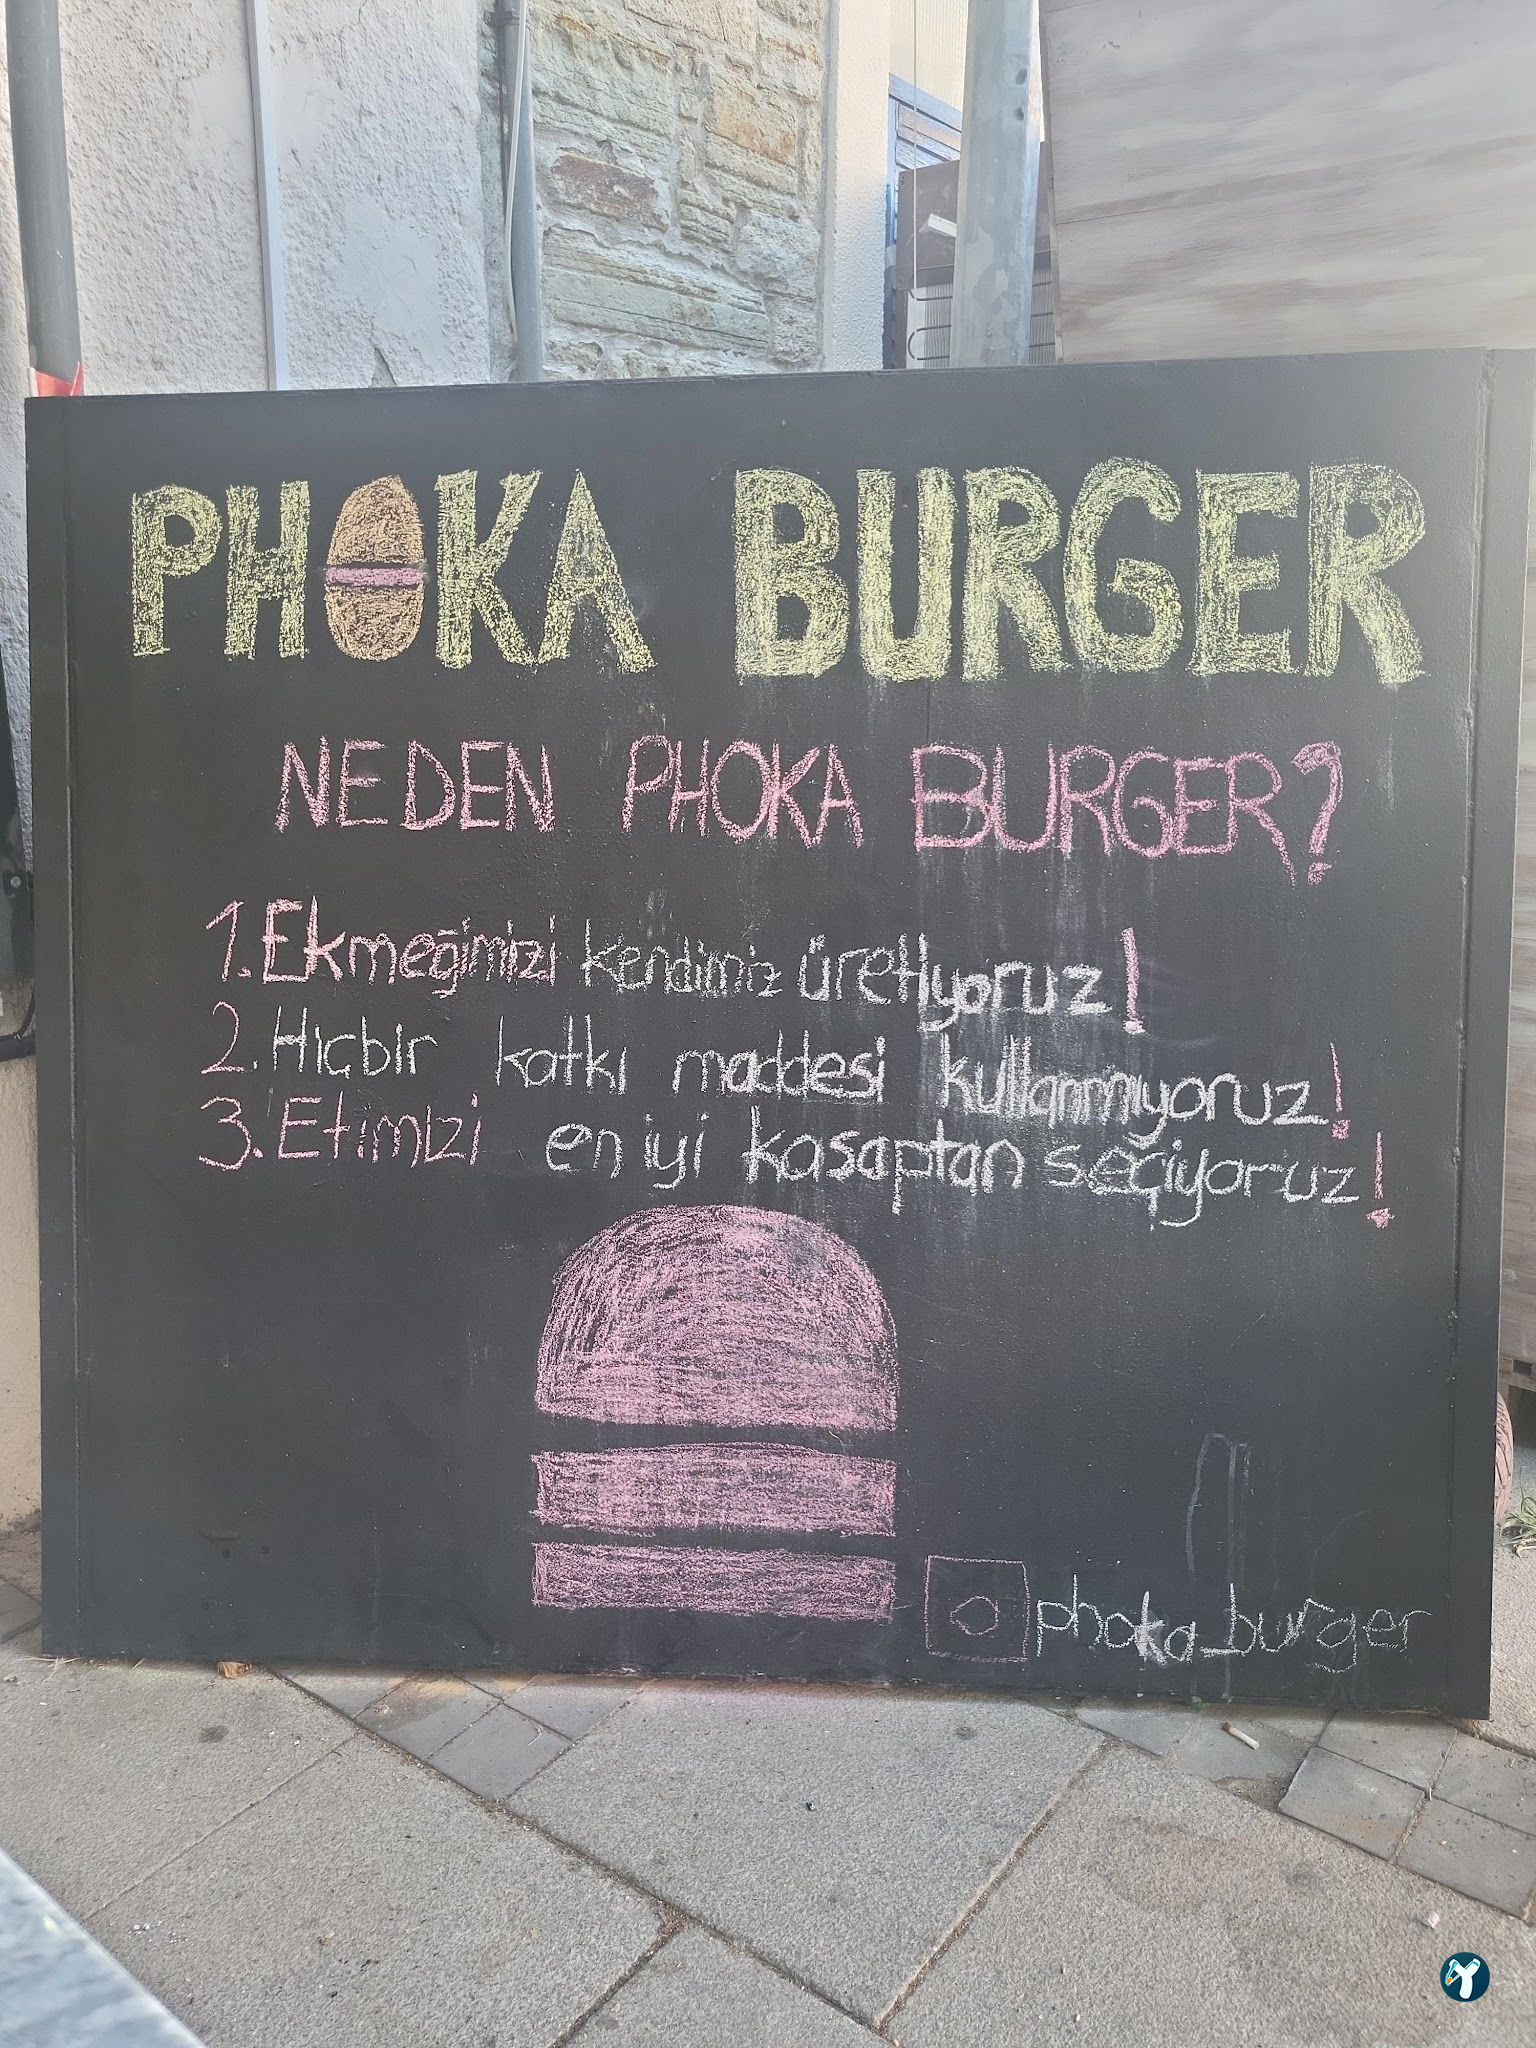 PHOKA BURGER
NEDEN PHOKA BURGER?
1. Ekmeğimizi kendimiz üretiyoruz!
2. Hiçbir katkı maddesi kullanmıyoruz!
3. Etimizi en iyi kasaptan seçiyoruz!
phoka_burger